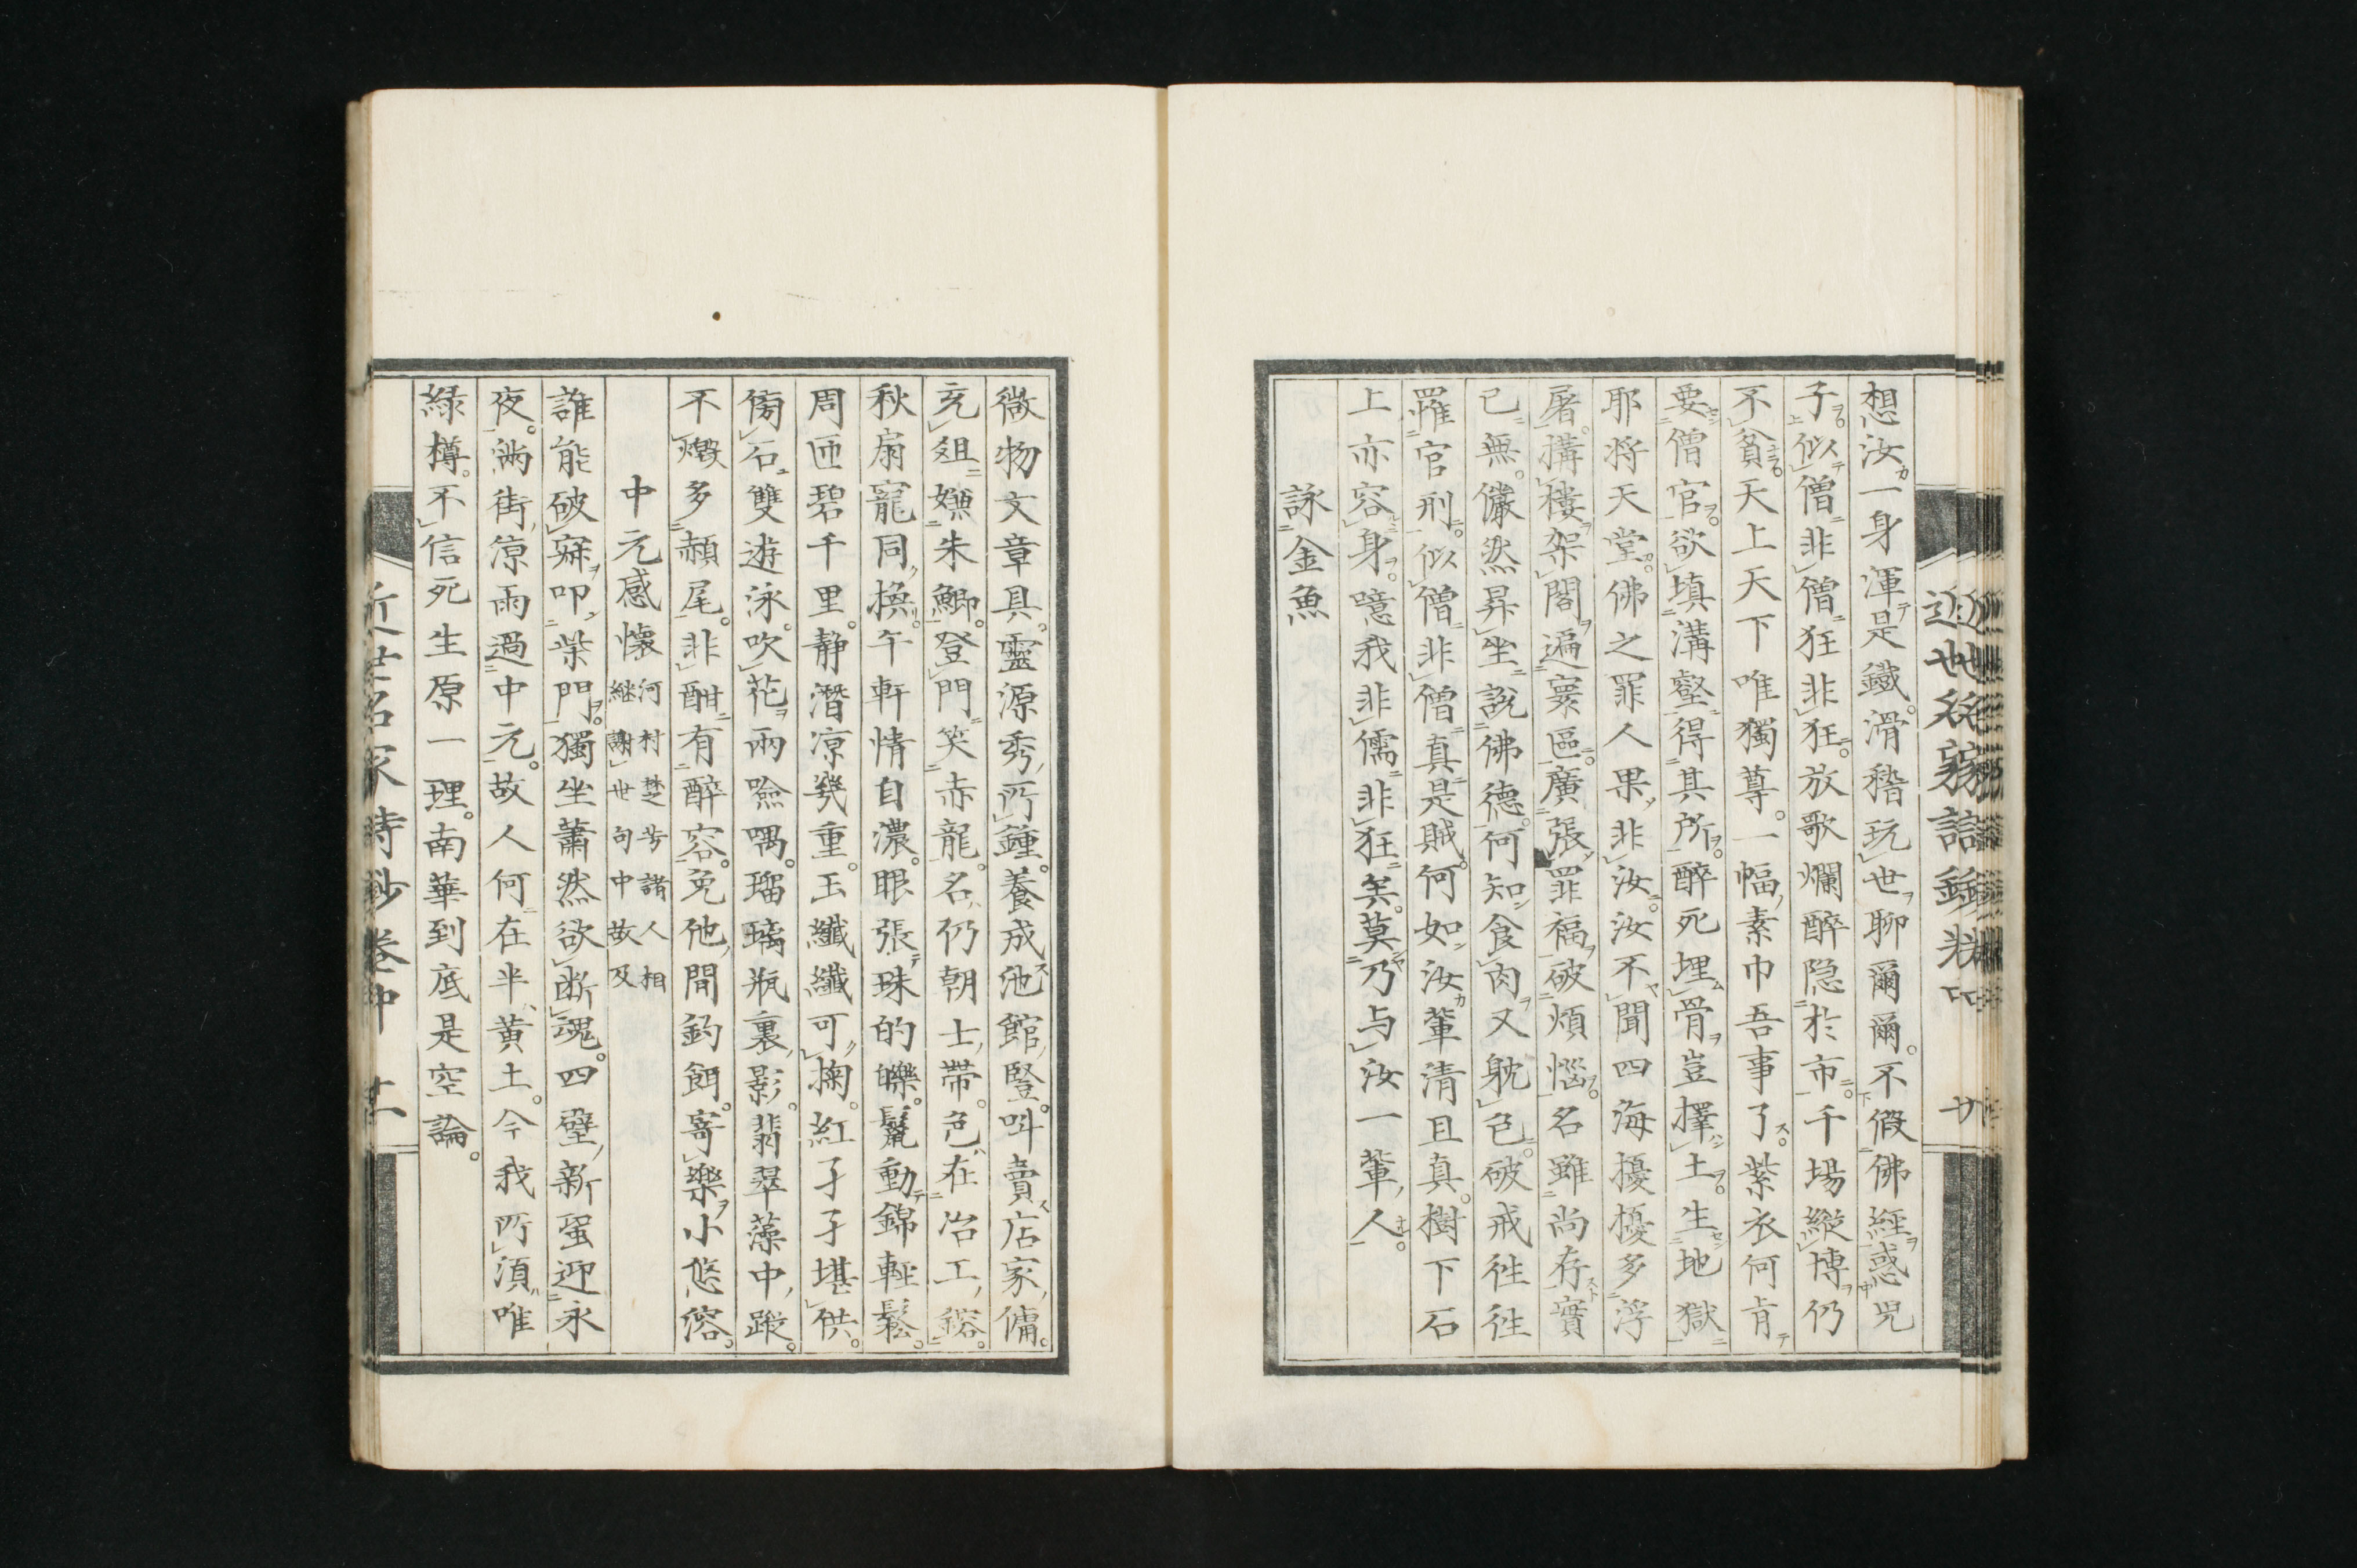 想汝一身渾是鐵。滑稽玩世聊爾爾。不假佛經惑兒
子。似僧非僧狂非狂。放歌爛醉隠於市。千場縦博仍
不貧。天上天下唯獨尊。一幅素巾吾事了。紫衣何肯
要僧官。欲填溝壑得其所。醉死埋骨豈擇土。生地獄
耶将天堂。佛之罪人果非汝。汝不聞四海擾擾多浮
屠。搆樓架閣遍寰區。廣張罪福破煩惱。名雖尚存實
已無。儼然昇坐說佛德。何知食肉又躭色。破戒徃徃
罹官刑。似僧非僧真是賊。何如汝輩清且真。樹下石
上亦容身。噫我非儒非狂矣。莫乃与汝一輩人。
詠金魚
微物文章具。靈源秀所鍾。養成池館豎。叫賣店家傭。
充俎嫌朱鯽。登門笑赤龍。名仍朝士帶。色在冶工鎔。
秋扇寵同換。午軒情自濃。眼張珠的皪。鬣動錦輕鬆。
周匝碧千里。静潛凉幾重。玉纖纖可掬。紅孑孑堪供。
傍石雙遊泳。吹花兩噞喁。瑠璃瓶裏影。翡翠藻中蹤。
不燬多赬尾。非酣有醉容。免他間釣餌。寄樂小悠溶。
中元感懷
河村楚芳諸人相
継謝世句中故及
誰能破寂叩柴門。獨坐蕭然欲断魂。四壁新蛩迎永
夜。満街涼雨過中元。故人何在半黄土。今我所須唯
緑樽。不信死生原一理。南華到底是空論。
近世名家詩鈔卷中 廿一